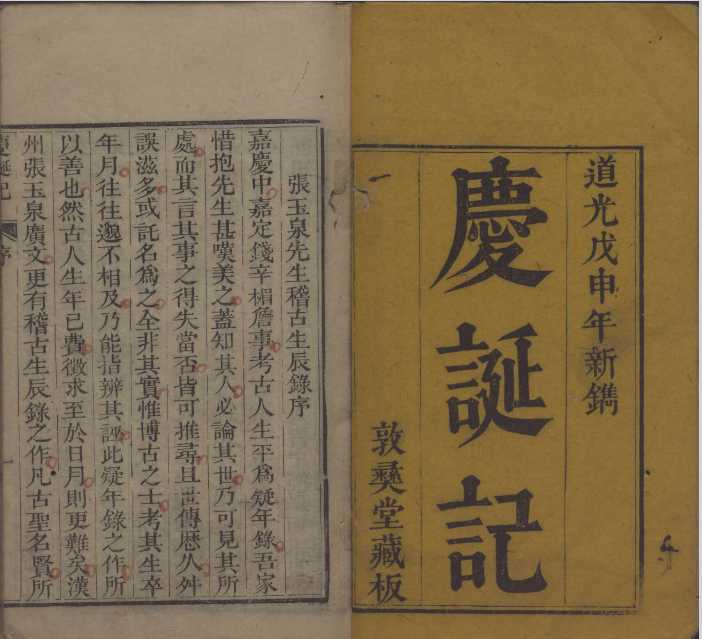 道光戊申年新鐫
慶誕記
敦彝堂藏板
張玉泉先生稽古生辰錄序
嘉慶中嘉定錢辛楣詹事考古人生平爲疑年錄吾家
惜抱先生甚嘆美之蓋知其人必論其世乃可見其所
處而其言其事之得失當否皆可推尋且世傳歷久舛
誤滋多或託名爲之全非其實惟博古之士考其生卒
年月往往邈不相及乃能指辨其誣此疑年錄之作所
以善也然古人生年已費徵求至於日月則更難矣漢
州張玉泉廣文更有稽古生辰錄之作凡古聖名賢所
慶誕記
序
一